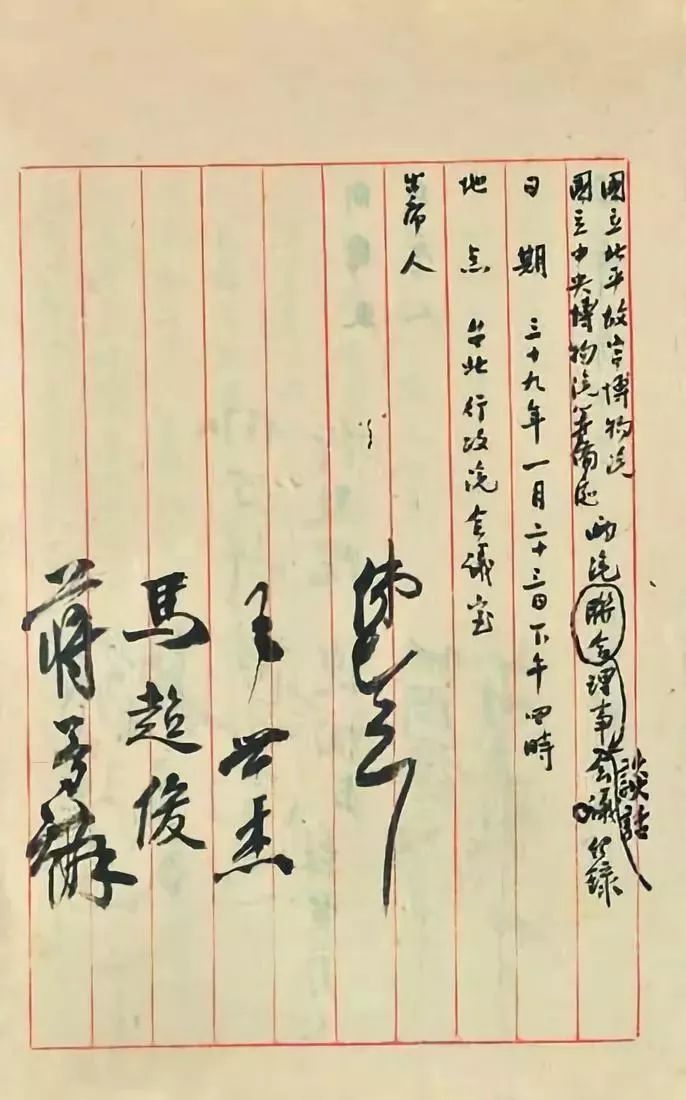 國立北平故宮博物院
國立中央博物院籌備處
兩院聯合理事会議紀錄
談話
日期 三十九年一月二十三日下午四時
地点 台北行政院会議室
出席人
王世杰
馬超俊
蔣夢麟